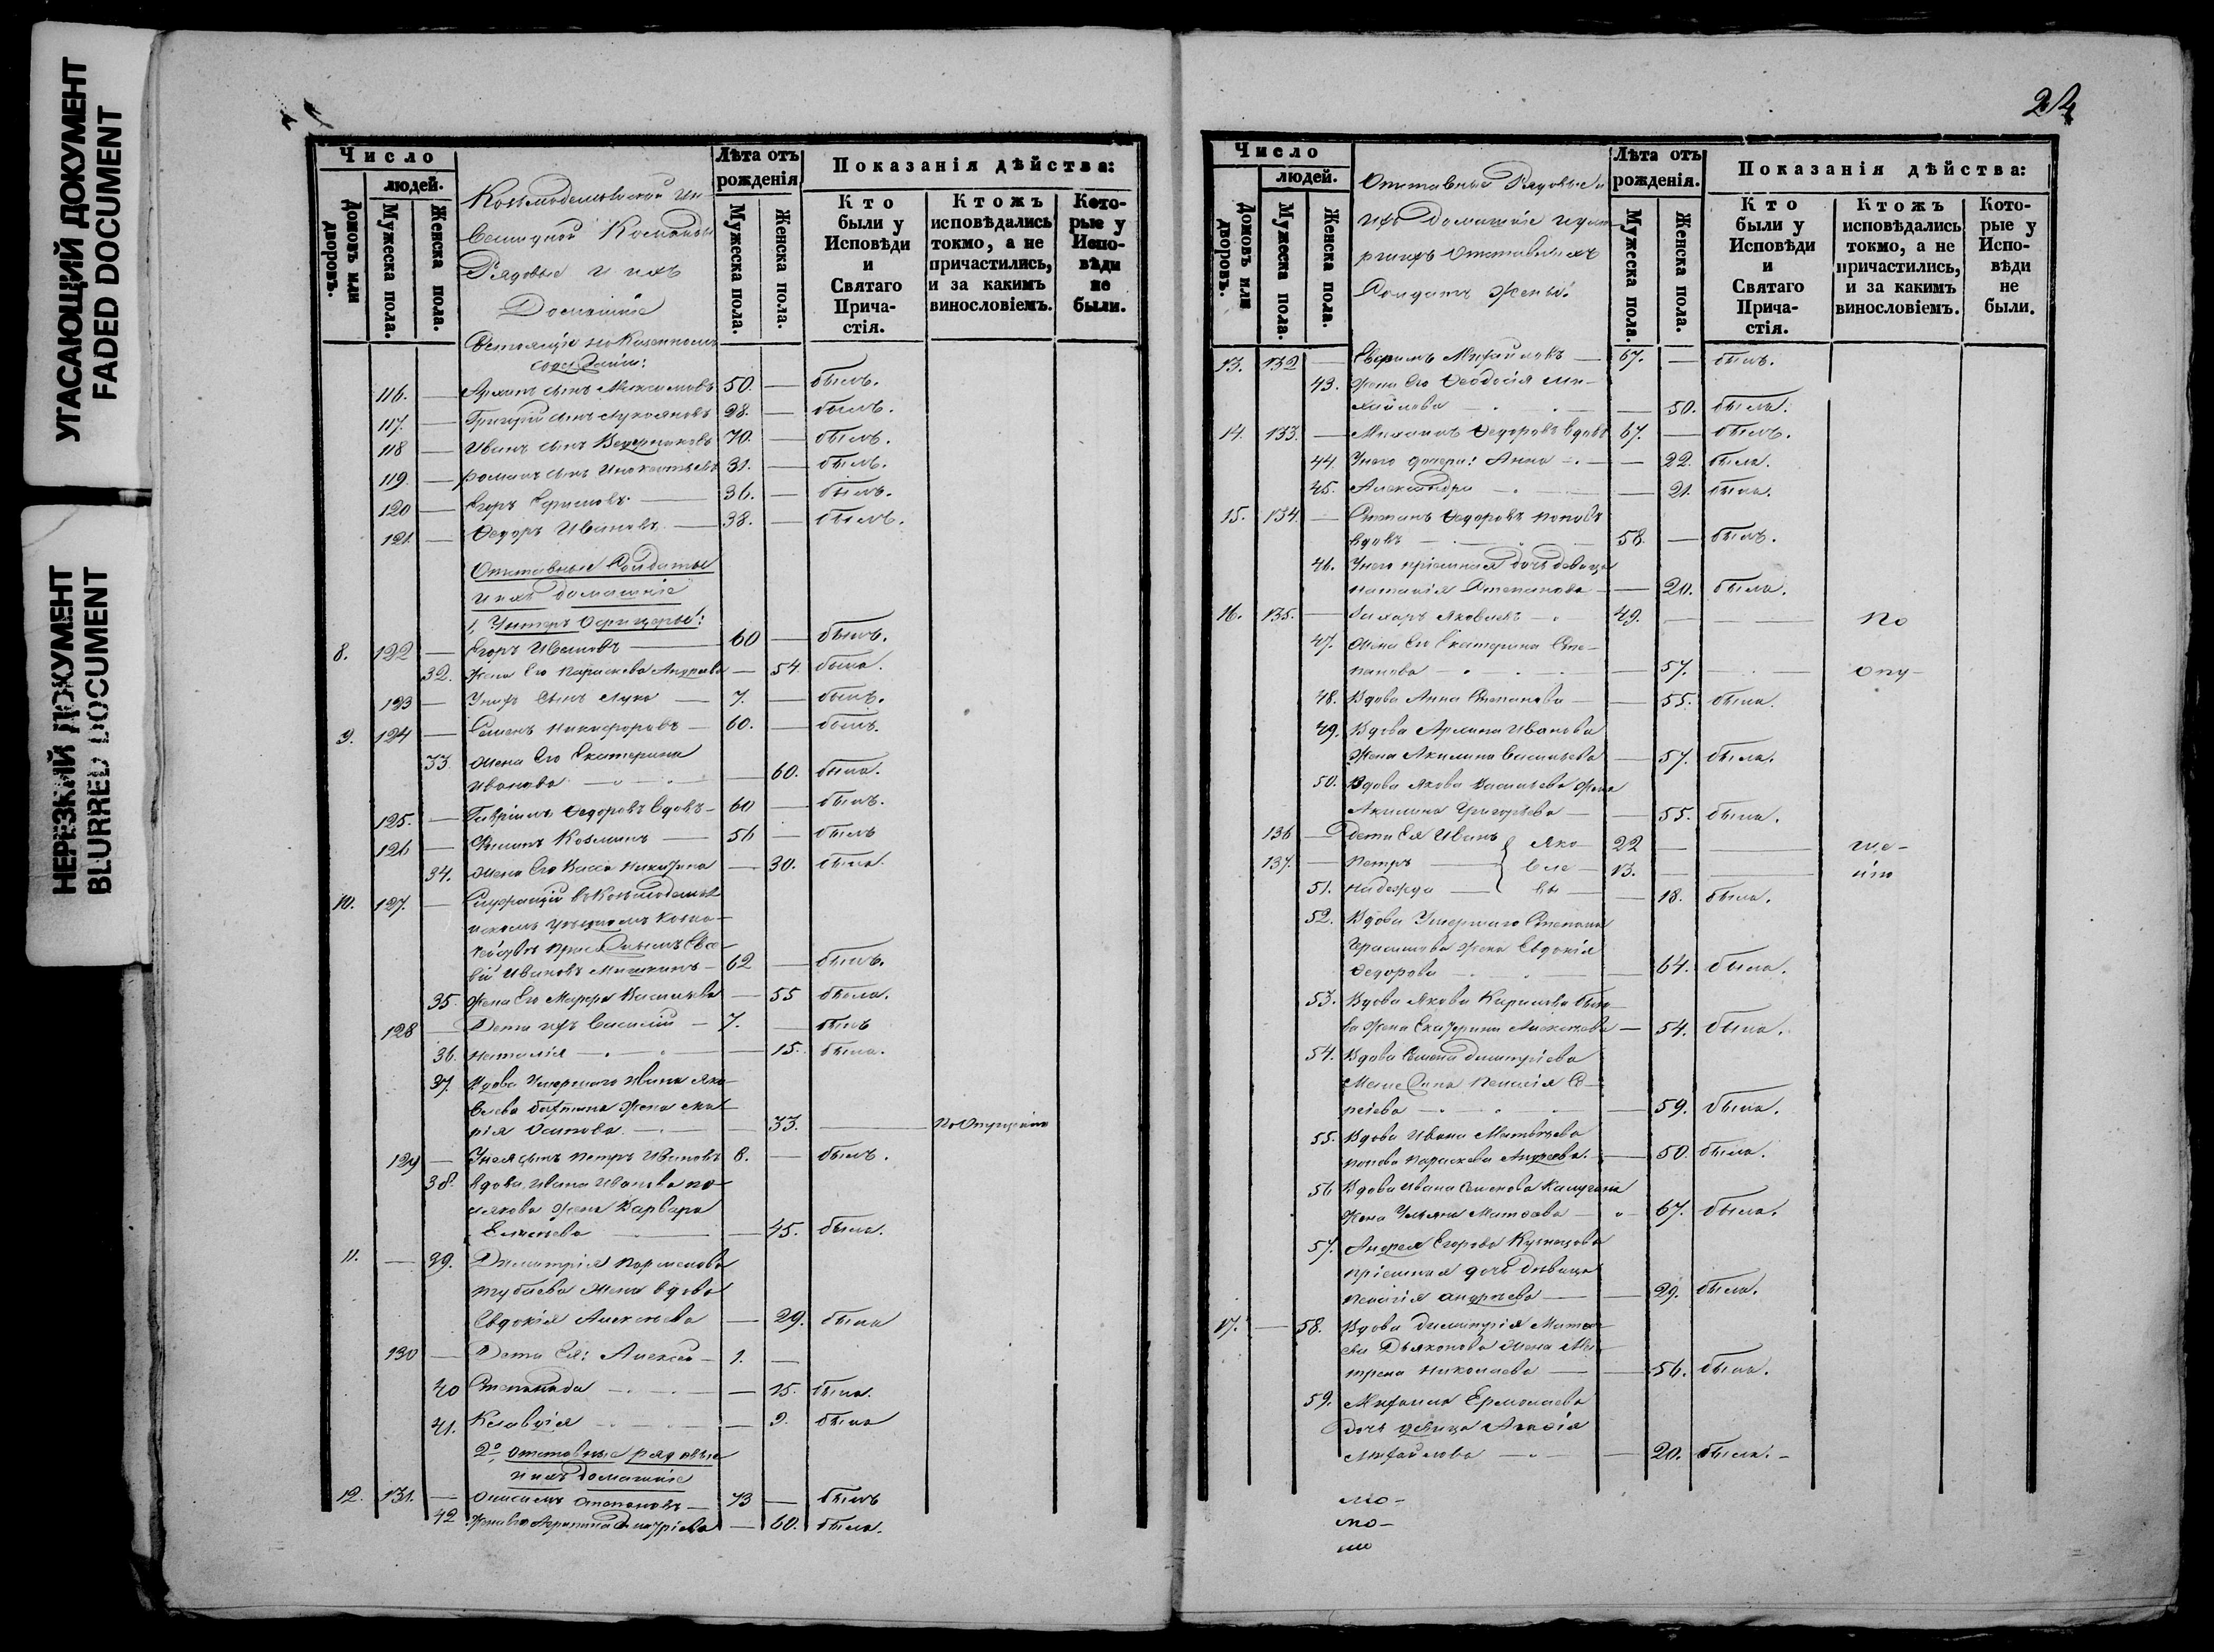 УГАСАЮЩИЙ ДОКУМЕНТ
FADED DOCUMENT
НЕРЕЗКИЙ ДОКУМЕНТ
BLURRED DOCUMENT
Число
людей.
Домовъ или дворовъ.
Мужеска пола.
Женска пола.
Козмодемьянской Ин-
валидной Команды
Рядовые и ихъ
Домашніе
Лѣта отъ рожденія
Мужеска пола.
Женска пола.
Показанія дѣйства:
Кто были у Исповѣди и Святаго Прича-стія.
Ктожъ исповѣдались токмо, а не причастились, и за какимъ винословіемъ.
Кото-рые у Испо-вѣди не были.
116. — 50. — былъ.
117. — Григорій сынъ Лукояновъ 28. — былъ.
118 — Иванъ сынъ 70. — былъ.
119. — Романъ сынъ 31. — былъ.
120 — Егоръ Ефимовъ — 36. — былъ.
121. — Ѳедоръ Ивановъ — 38. — былъ.
Отставные Солдаты
и ихъ домашніе
1, Унтеръ Офицеры:
8. 122 — Егоръ Ивановъ — 60 — былъ.
32. Жена Его Параскева Андреева — 54. была.
123 — У нихъ сынъ Лука — 7. — былъ.
9. 124 — Семенъ Никифоровъ — 60. — былъ.
33. Жена Его Екатерина
Иванова — 60. была.
125. — Гавріилъ Ѳедоровъ вдовъ — 60 — былъ.
126 — Филипъ Козминъ — 56 — былъ
34. Жена Его Васса Никитина — 30. была.
10. 127. — Служащій в Козмодемьян
скомъ уѣздномъ Казна-
чействѣ
Ивановъ — 62 — былъ.
35. Жена Его Марѳа Васильева — 55 была.
128 — Дети ихъ Василій — 7. — былъ
36. Наталія — 15. была.
37. Вдова Умершаго Ивана Яко-
влева жена Ма-
рія Осипова — 33. — По Опущенію
129 — У нея сынъ Петръ Ивановъ 8. — былъ.
38. Вдова Ивана Иванова По-
лякова жена Варвара
45. была.
11. — 39. Димитрія
жена вдова
Евдокія Алексѣева — 29. была
130 — Дети Ея: Алексей — 1. —
40 Степанида — 15. была.
41. Клавдія — 9. была
2е отставные рядовые
и ихъ домашніе
12. 131. — Степановъ — 73 — былъ
42 Жена Его Агрипина Дмитріева — 60. была.
24
Число
людей.
Домовъ или дворовъ.
Мужеска пола.
Женска пола.
Отставные Рядовые и
ихъ Домашніе и уме
ршихъ Отставныхъ
Солдатъ Жены:
Лѣта отъ рожденія.
Мужеска пола.
Женска пола.
Показанія дѣйства:
Кто были у Исповѣди и Святаго Прича-стія.
Ктожъ исповѣдались токмо, а не причастились, и за какимъ винословіемъ.
Кото-рые у Испо-вѣди не были.
13. 132 — Ефимъ Михайловъ — 67. — былъ.
43. Жена Его Ѳеодосія Ми-
хайлова — 50. была.
14. 133. — Ѳедоровъ вдовъ 67. — былъ.
44. У него дочери: Анна — 22. была.
45. Александра — 21. была.
15. 134. — Степанъ Ѳедоровъ Поповъ
вдовъ — 58. — былъ.
46. У него пріемная дочь девица
Наталія Степанова — 20. была.
16. 135. — Захаръ Яковлевъ — 49. — По
47. Жена Его Екатерина Сте-
панова — 57. — опу-
48. Вдова Анна Степанова — 55. была.
49. Вдова Иванова
Жена Акилина Васильева — 57. была.
50. Вдова Якова Васильева жена
Акилина Григорьева — 55. была.
136 — Дети Ея Иванъ Яко- 22 — ще-
137. — Петръ — вле- 13. — нію
51. Надежда — вы — 18. была.
52. Вдова Умершаго Степана
Герасимова жена Евдокія
Ѳедорова — 64. была.
53. Вдова Якова Кирилова
ва жена Екатерина Алексеева — 54. была.
54. Вдова Семена Димитріева
Пелагія Се-
ргіева — 59. была.
55. Вдова Ивана Матвѣева
Попова Параскева Андреева. — 50. была.
56 Вдова Ивана Семенова Калугина
Жена Ульяна Матвѣева — 67. была.
57. Андрея Егорова Кузнецова
пріемная дочь девица
Пелагія Андреева — 29. была.
17. — 58. Вдова Димитрія Матве-
ева Дьяконова жена Ма-
трена Николаева — 56. была.
59. Михаила Ермолаева
дочь девица
Михайлова — 20. была. —